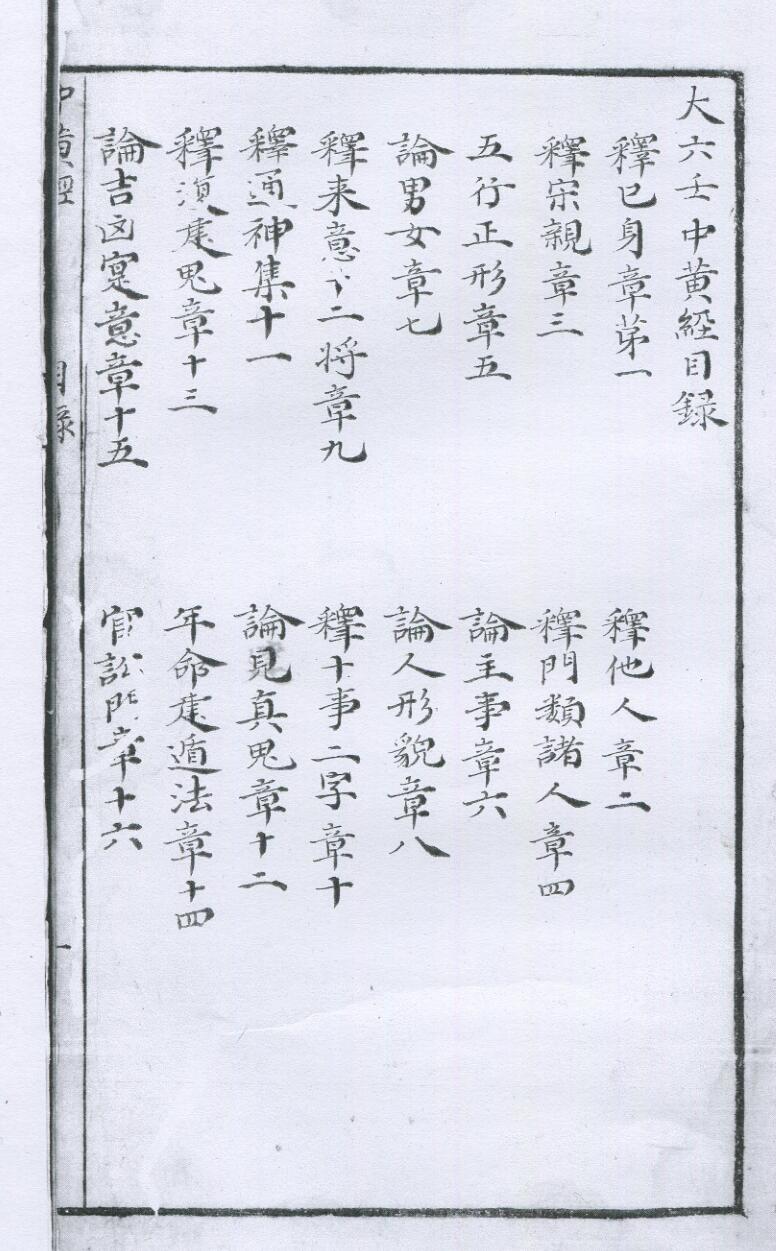 大六壬中黄經目録
釋已身章苐一
釋他人章二
釋宗親章三
釋門𩔖諸人章四
五行正形章五
論主事章六
論男女章七
論人形貌章八
釋来意十二将章九
釋十事二字章十
釋通神集十一
論見真鬼章十二
釋湏建鬼章十三
年命建遁法章十四
論吉凶寔意章十五
官訟門章十六
中黄經
目録
一